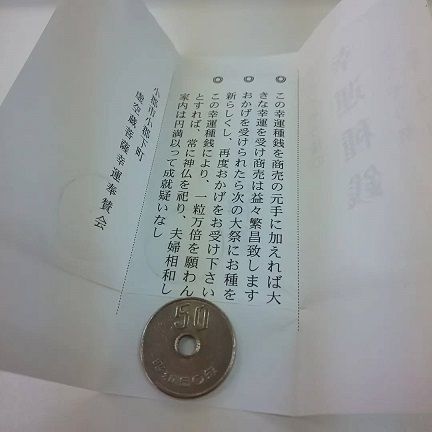 ◎この幸運種銭を商売の元手に加えれば大
きな幸運を受け商売は益々繁昌致します
◎おかげを受けられたら次の大祭にお種を
新らしくし、再度おかげをお受け下さい
◎この幸運種銭により、一粒万倍を願わん
とすれば、常に神仏を祀り、夫婦相和し
家内は円満以って成就疑いなし
小松市小松下町
虚空蔵菩薩幸運奉賛会
50